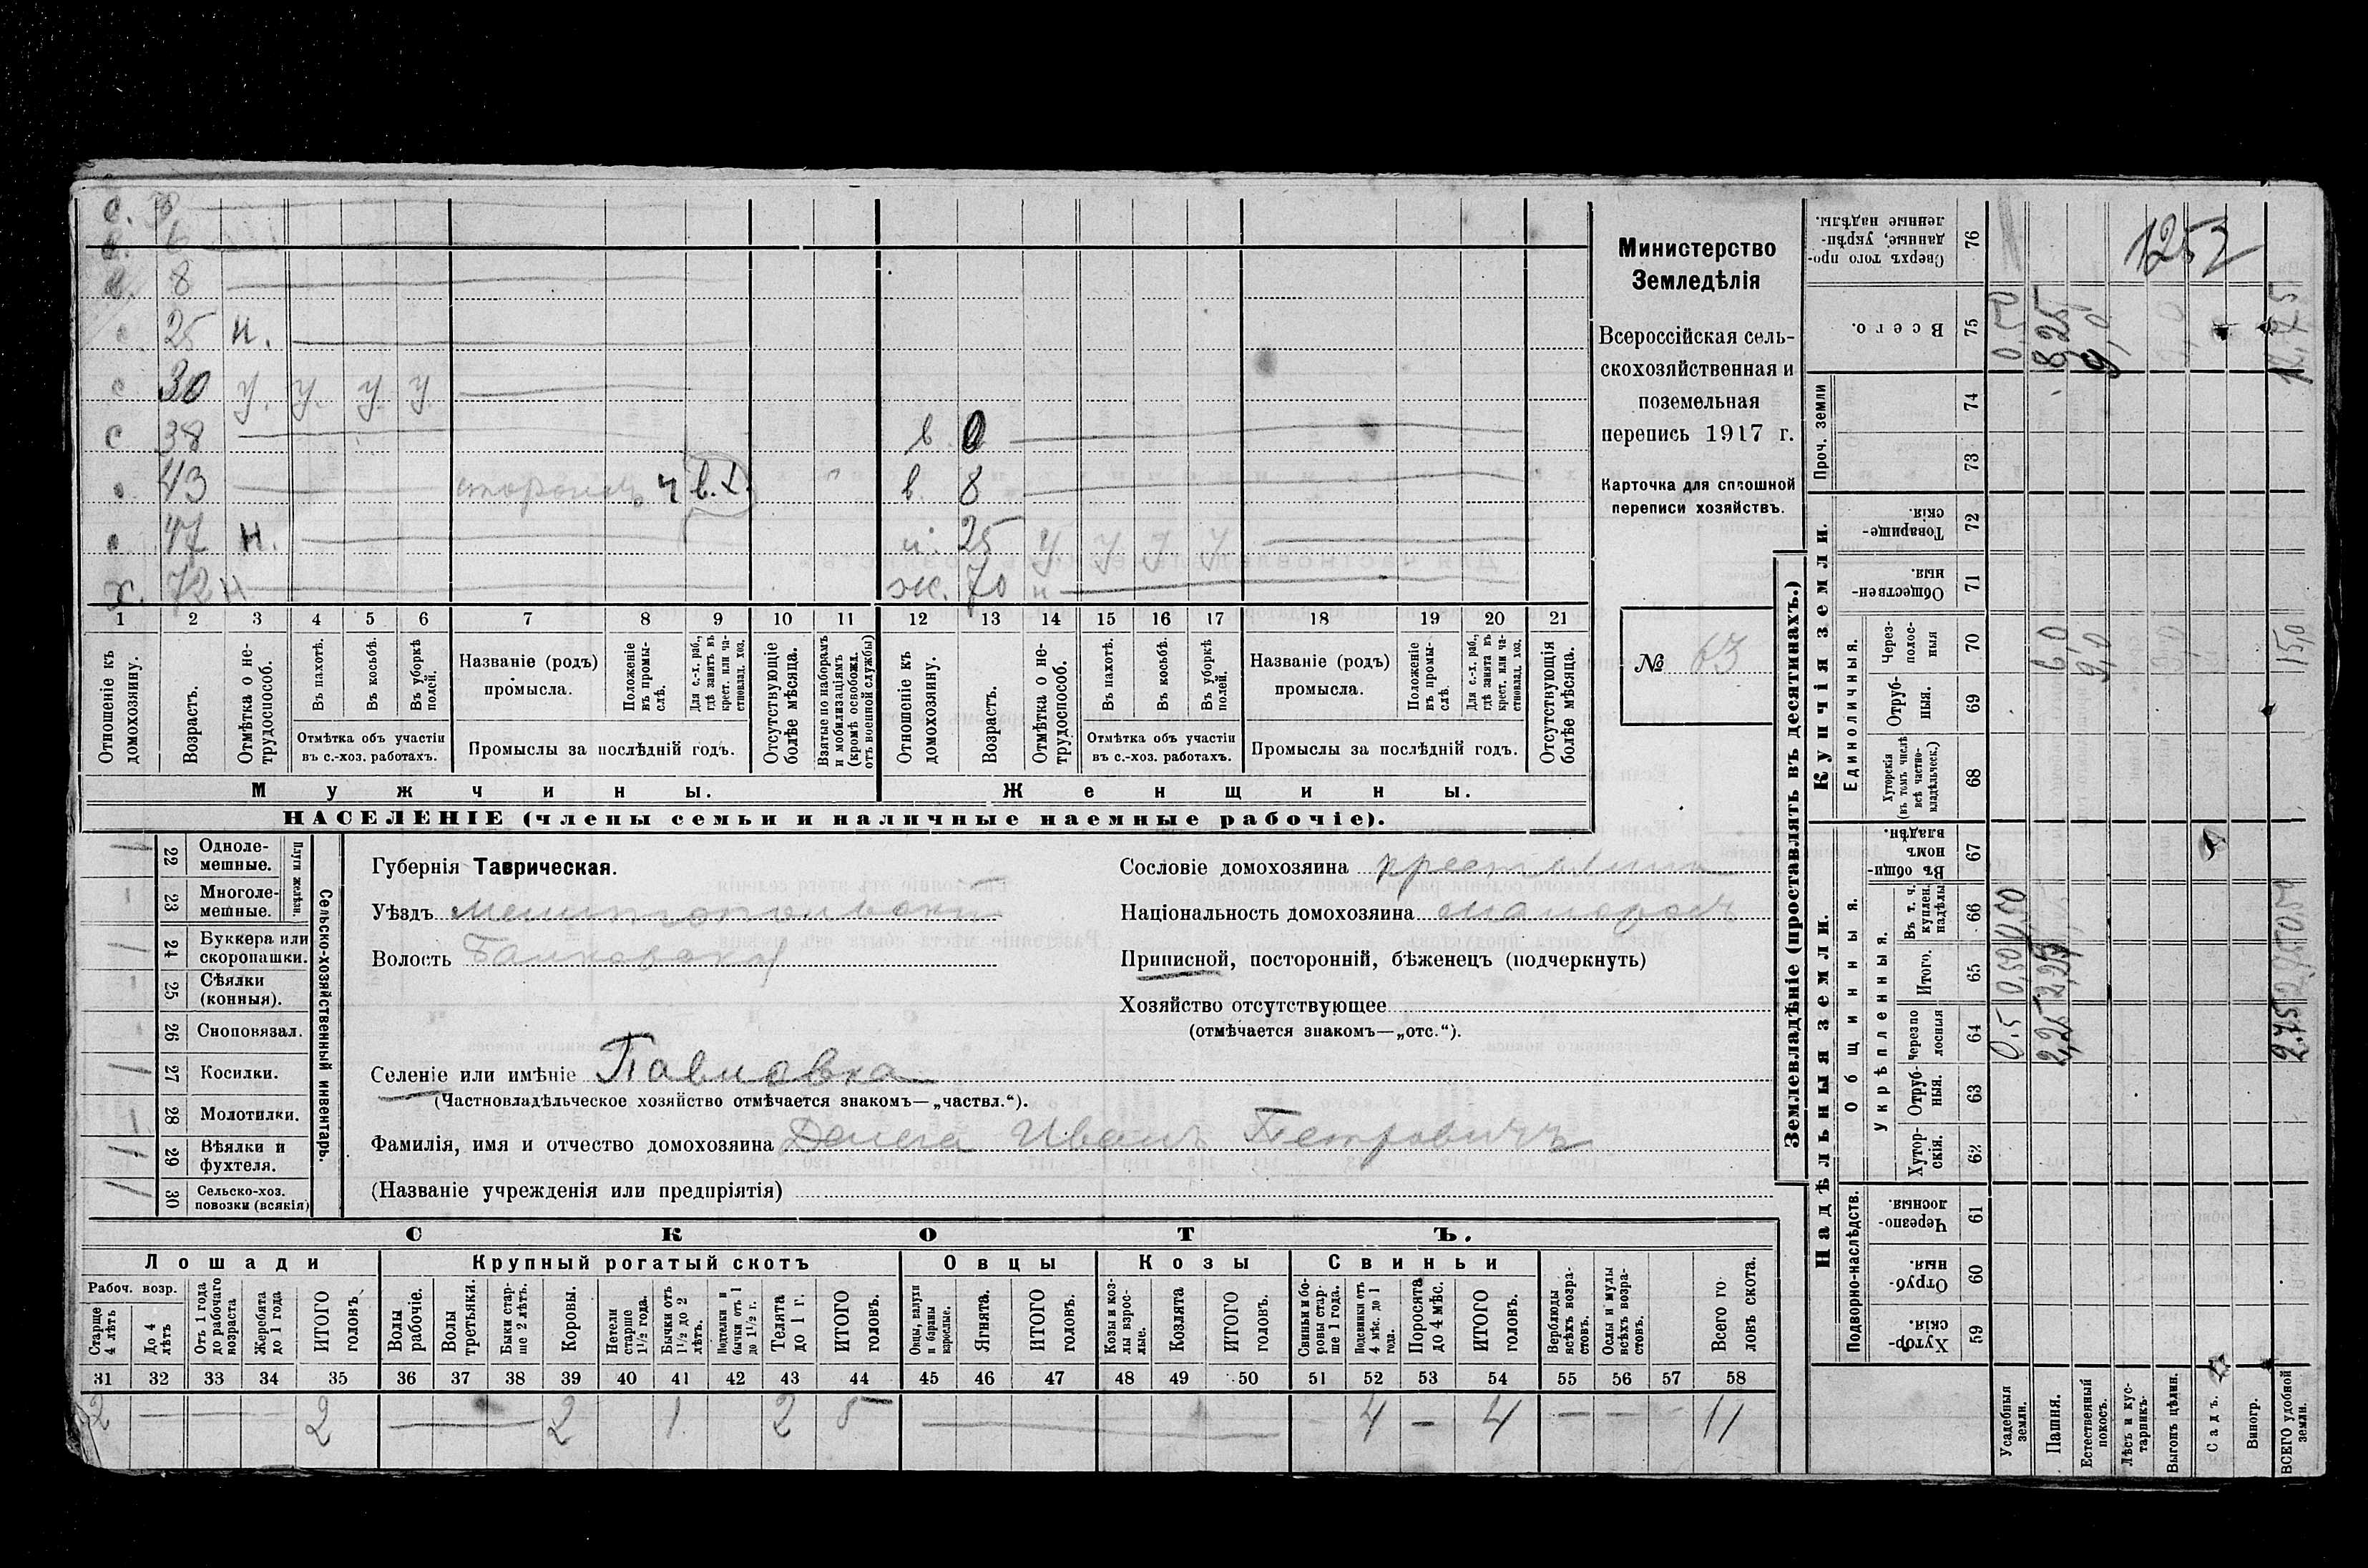 с.
6
8
25 н.
с 30 у. у. у. у.
с 38 в 0
43 ч в. х. в. 8
47 н. 25 у. у у у
х. 72 н ж. 70 н
1 2 3 4 5 6 7 8 9 10 11 12 13 14 15 16 17 18 19 20 21
Отношеніе къ домохозяину.
Возрастъ.
Отмѣтка о нетрудоспособ.
Въ пахотѣ.
Въ косьбѣ.
Въ уборкѣ полей.
Отмѣтка объ участіи въ с.-хоз. работахъ.
Названіе (родъ) промысла.
Положеніе въ промыслѣ.
Для с.-х. раб., гдѣ занятъ въ крест. или частновлад. хоз.
Промыслы за послѣдній годъ.
Отсутствующіе болѣе мѣсяца.
Взятые по наборамъ и мобилизаціямъ (кромѣ освобожд. отъ военной службы)
Отношеніе къ домохозяину.
Возрастъ.
Отмѣтка о нетрудоспособ.
Въ пахотѣ.
Въ косьбѣ.
Въ уборкѣ полей.
Отмѣтка объ участіи въ с.-хоз. работахъ.
Названіе (родъ) промысла.
Положеніе въ промыслѣ.
Для с.-х. раб., гдѣ занята въ крест. или частновлад. хоз.
Промыслы за послѣдній годъ.
Отсутствующія болѣе мѣсяца.
Мужчины.
Женщины.
НАСЕЛЕНІЕ (члены семьи и наличные наемные рабочіе).
Министерство
Земледѣлія
Всероссійская сель-
скохозяйственная и
поземельная
перепись 1917 г.
Карточка для сплошной
переписи хозяйствъ.
№ 63
Сельско-хозяйственный инвентарь.
Плуги желѣзн.
1 22 Однолемешные.
23 Многолемешные.
1 24 Буккера или скоропашки.
25 Сѣялки (конныя).
26 Сноповязал.
1 27 Косилки.
28 Молотилки.
1 29 Вѣялки и фухтеля.
1 30 Сельско-хоз. повозки (всякія)
Губернія Таврическая.
Уѣздъ Мелитопольскій
Волость Балковская
Селеніе или имѣніе Павловка
(Частновладѣльческое хозяйство отмѣчается знакомъ—„частвл.“).
Фамилія, имя и отчество домохозяина Иванъ Петровичъ
(Названіе учрежденія или предпріятія)
Сословіе домохозяина крестьянин
Національность домохозяина малоросъ
Приписной, посторонній, бѣженецъ (подчеркнуть)
Хозяйство отсутствующее
(отмѣчается знакомъ—„отс.“).
СКОТЪ.
Лошади
Крупный рогатый скотъ
Овцы
Козы
Свиньи
Рабоч. возр.
Старше 4 лѣтъ
До 4 лѣтъ
Отъ 1 года до рабочаго возраста
Жеребята до 1 года
ИТОГО головъ.
Волы рабочіе.
Волы третьяки.
Быки старше 2 лѣтъ.
Коровы.
Нетели старше 1½ года.
Бычки отъ 1½ до 2 лѣтъ.
Подтелки и бычки отъ 1 до 1½ г.
Телята до 1 г.
ИТОГО головъ.
Овцы, валухи и бараны взрослые.
Ягнята.
ИТОГО головъ.
Козы и козлы взрослые.
Козлята
ИТОГО головъ.
Свиньи и боровы старше 1 года.
Подсвинки отъ 4 мѣс. до 1 года.
Поросята до 4 мѣс.
ИТОГО головъ.
Верблюды всѣхъ возрастовъ.
Ослы и мулы всѣхъ возрастовъ.
Всего головъ скота.
31 32 33 34 35 36 37 38 39 40 41 42 43 44 45 46 47 48 49 50 51 52 53 54 55 56 57 58
2 — 2 — 2 1 2 5 — 4 — 4 — — 11
Землевладѣніе (проставлять въ десятинахъ.)
Надѣльныя земли.
Купчія земли.
Проч. земли
Подворно-наслѣдств.
Общинныя.
Укрѣпленныя.
Единоличныя.
59 Хуторскія.
60 Отрубныя.
61 Черезполосныя.
62 Хуторскія.
63 Отрубныя.
64 Черезполосныя
65 Итого.
66 Въ т. ч. куплен. надѣлы
67 Въ общинномъ владѣн.
68 Хуторскія (въ томъ числѣ всѣ частновладѣльческ.)
69 Отрубныя.
70 Черезполосныя
71 Общественныя.
72 Товарищескія.
73
74
75 Всего.
76 Сверхъ того проданные, укрѣпленные надѣлы.
Усадебныя земли. 0.5 0,50 0,50 0,50
Пашня. 2,25 2,25 6,0 8,25
Естественный покосъ. 9,0 9,0
Лѣсъ и кустарникъ.
Выгонъ цѣлин.
Садъ.
Виногр.
ВСЕГО удобной земли. 2.75 15,0
1252